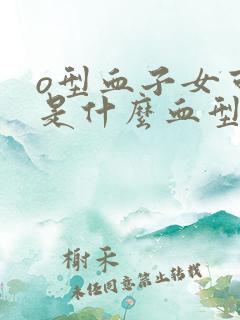 o型血子女
是什麼血型
榭禾
未经同意禁止转载